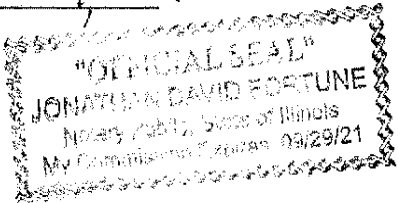 "OFFICIAL SEAL"
JONATHAN DAVID FORTUNE
Notary Public, State of Illinois
My Commission Expires 09/29/21